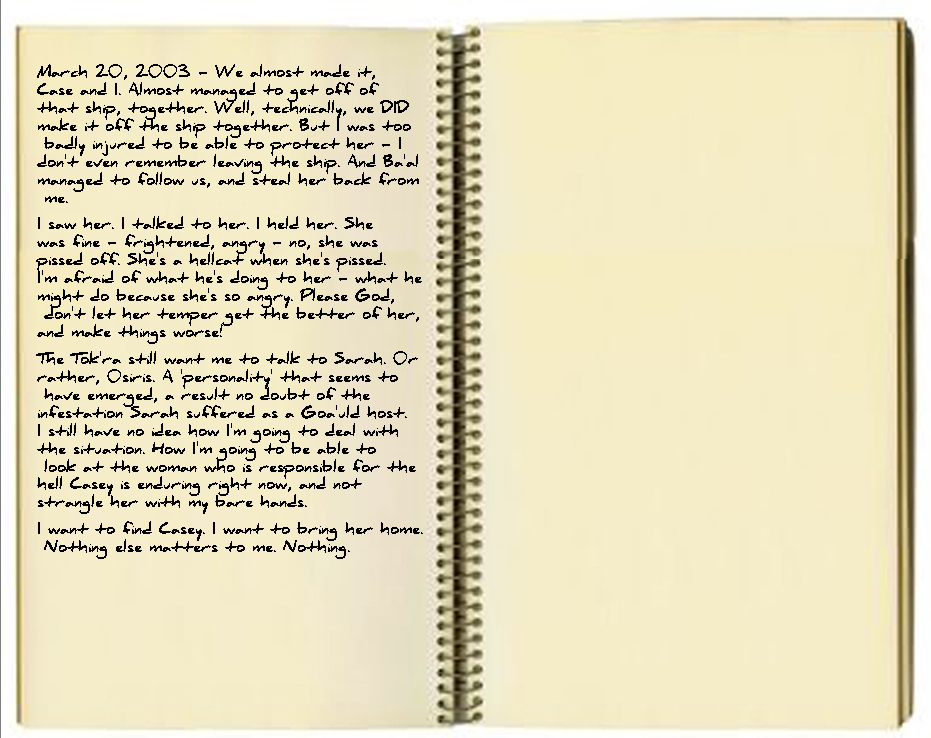 March 20, 2003 - We almost made it,
Case and I. Almost managed to get off of
that ship, together. Well, technically, we DID
make it off the ship together. But I was too
badly injured to be able to protect her - I
don't even remember leaving the ship. And Ba'al
managed to follow us, and steal her back from
me.
I saw her. I talked to her. I held her. She
was fine - frightened, angry - no, she was
pissed off. She's a hellcat when she's pissed.
I'm afraid of what he's doing to her - what he
might do because she's so angry. Please God,
don't let her temper get the better of her,
and make things worse!
The Tok'ra still want me to talk to Sarah. Or
rather, Osiris. A 'personality' that seems to
have emerged, a result no doubt of the
infestation Sarah suffered as a Goa'uld host.
I still have no idea how I'm going to deal with
the situation. How I'm going to be able to
look at the woman who is responsible for the
hell Casey is enduring right now, and not
strangle her with my bare hands.
I want to find Casey. I want to bring her home.
Nothing else matters to me. Nothing.